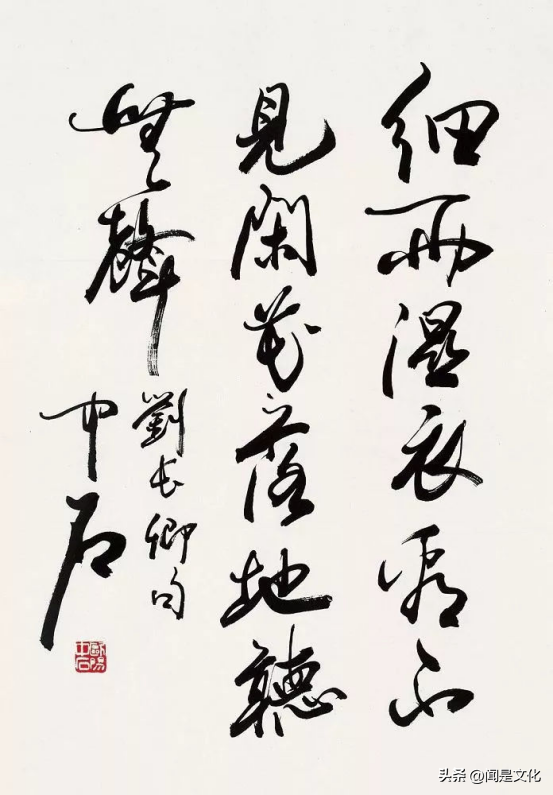 細雨湿衣看不
見閑花落地聽
無聲
劉長卿句
中石
歐陽
中石
头条 @闻是文化